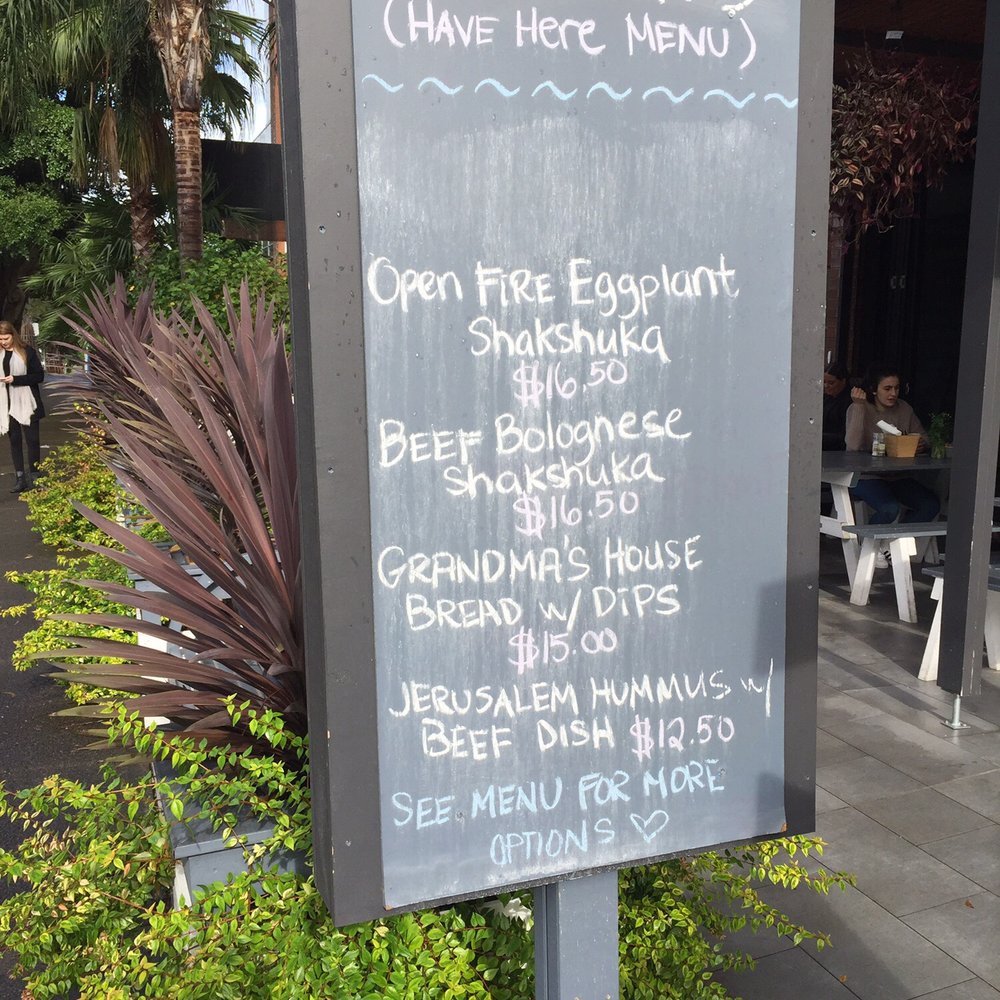 (HAVE Here MENU)
Open FIRE Eggplant
Shakshuka
$16.50
BEEF Bolognese
Shakshuka
$16.50
GRANDMA'S HOUSE
BREAD W/ DIPS
$15.00
JERUSALEM HUMMUS W/
BEEF DISH $12.50
SEE MENU FOR MORE
OPTIONS